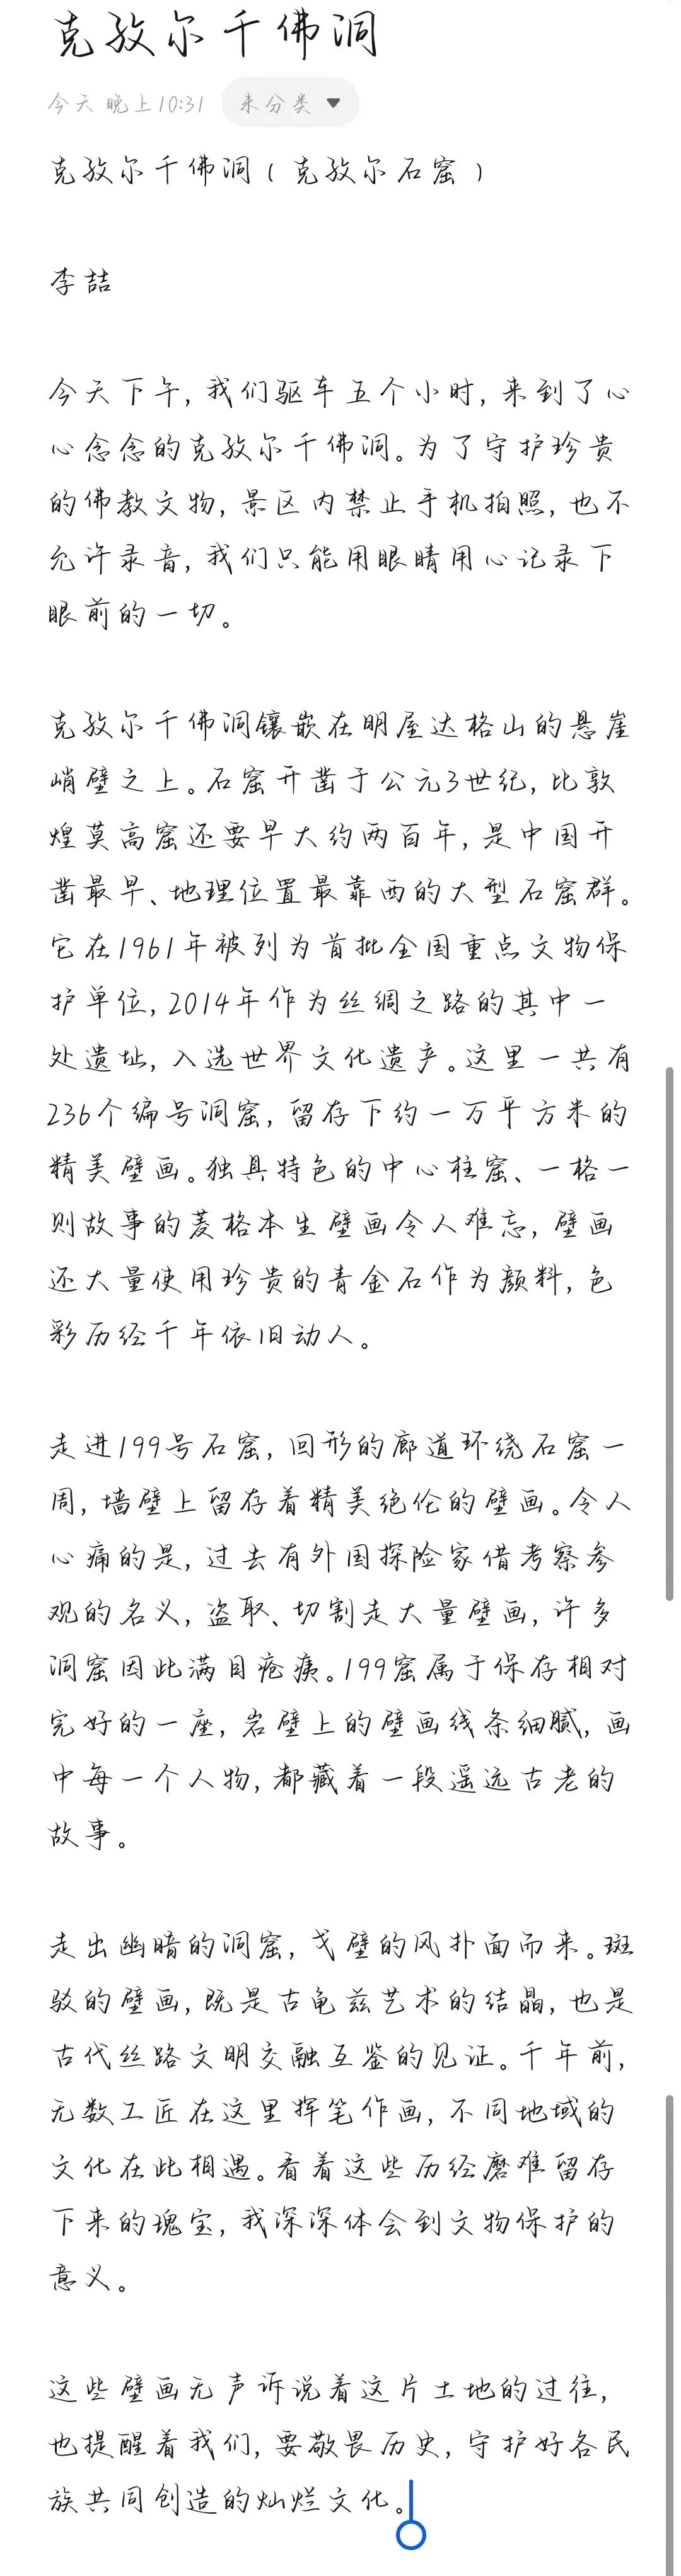 克孜尔千佛洞
今天 晚上10:31 未分类
克孜尔千佛洞（克孜尔石窟）
李喆
今天下午，我们驱车五个小时，来到了心
心念念的克孜尔千佛洞。为了守护珍贵
的佛教文物，景区内禁止手机拍照，也不
允许录音，我们只能用眼睛用心记录下
眼前的一切。
克孜尔千佛洞镶嵌在明屋达格山的悬崖
峭壁之上。石窟开凿于公元3世纪，比敦
煌莫高窟还要早大约两百年，是中国开
凿最早、地理位置最靠西的大型石窟群。
它在1961年被列为首批全国重点文物保
护单位，2014年作为丝绸之路的其中一
处遗址，入选世界文化遗产。这里一共有
236个编号洞窟，留存下约一万平方米的
精美壁画。独具特色的中心柱窟、一格一
则故事的菱格本生壁画令人难忘，壁画
还大量使用珍贵的青金石作为颜料，色
彩历经千年依旧动人。
走进199号石窟，回形的廊道环绕石窟一
周，墙壁上留存着精美绝伦的壁画。令人
心痛的是，过去有外国探险家借考察参
观的名义，盗取、切割走大量壁画，许多
洞窟因此满目疮痍。199窟属于保存相对
完好的一座，岩壁上的壁画线条细腻，画
中每一个人物，都藏着一段遥远古老的
故事。
走出幽暗的洞窟，戈壁的风扑面而来。斑
驳的壁画，既是古龟兹艺术的结晶，也是
古代丝路文明交融互鉴的见证。千年前，
无数工匠在这里挥笔作画，不同地域的
文化在此相遇。看着这些历经磨难留存
下来的瑰宝，我深深体会到文物保护的
意义。
这些壁画无声诉说着这片土地的过往，
也提醒着我们，要敬畏历史，守护好各民
族共同创造的灿烂文化。